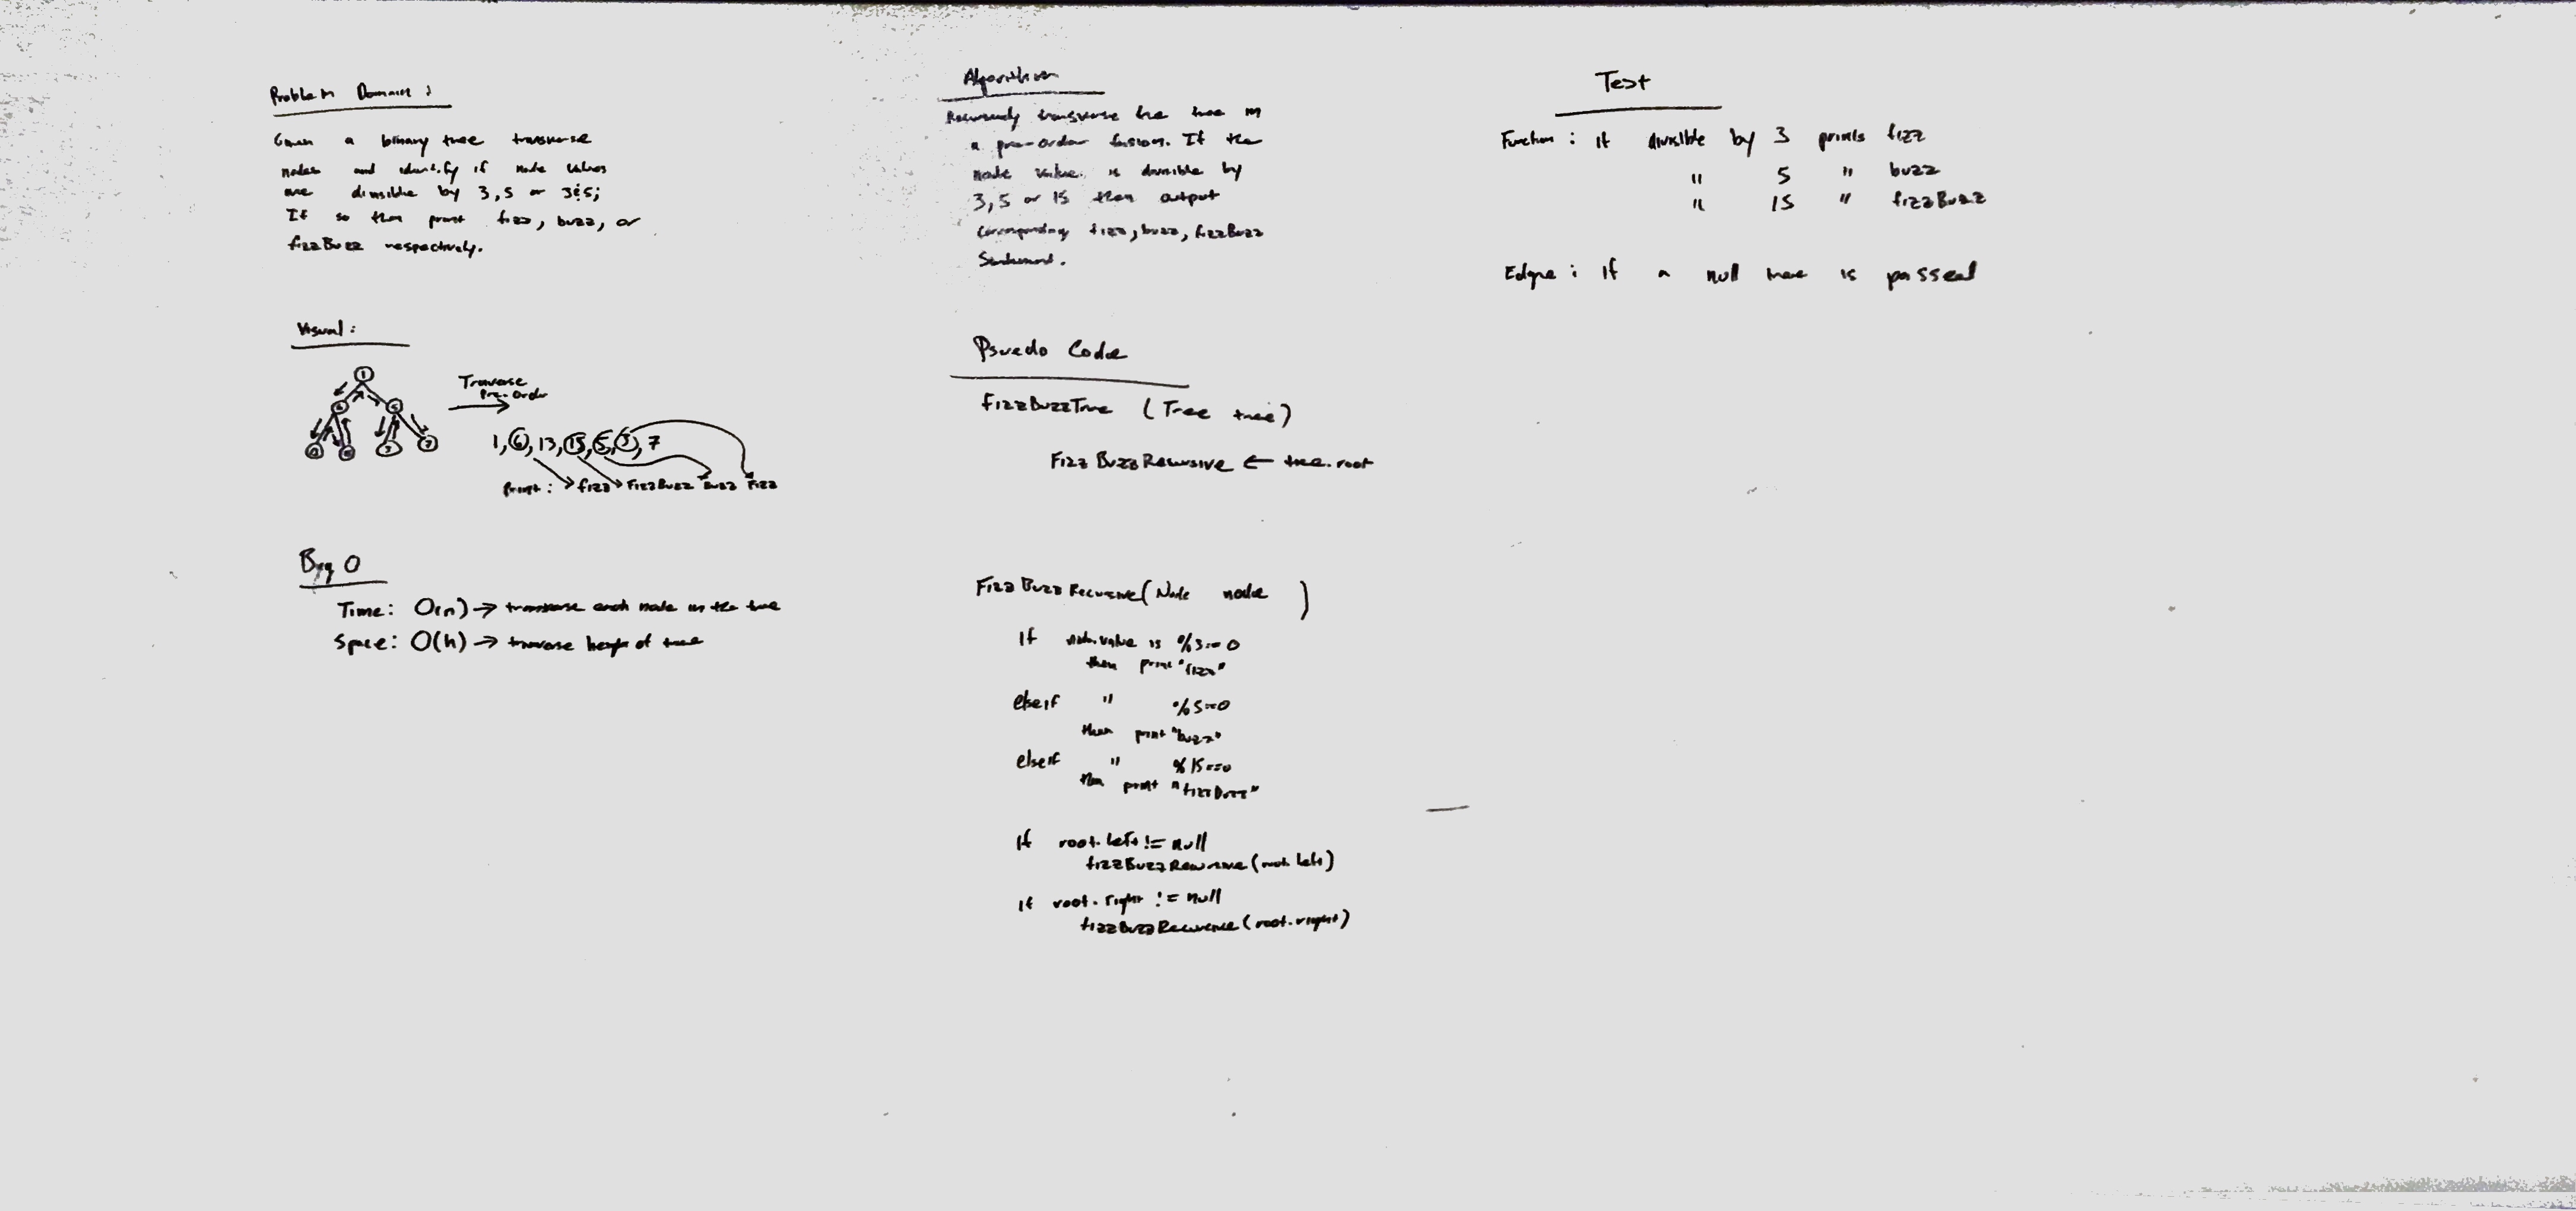 Problem Domain :
Given a binary tree transverse
nodes and identify if node values
are divisible by 3,5 or 3&5;
If so then print fizz, buzz, or
fizzBuzz respectively.
Visual :
1
6
5
3
7
Traverse
Pre-Order
1, 6, 13, 15, 5, 3, 7
Print : fizz FizzBuzz Buzz Fizz
Big O
Time: O(n) → transverse each node in the tree
Space: O(h) → traverse height of tree
Algorithm
Recursively transverse the tree in
a pre-order fasion. If the
node value is divisible by
3, 5 or 15 then output
corresponding fizz, buzz, fizzBuzz
Statement.
Psuedo Code
fizzBuzzTree (Tree tree)
FizzBuzzRecursive ← tree.root
FizzBuzzRecursive(Node node )
If node.value is %3==0
then print "fizz"
elseif " %5==0
then print "buzz"
elseif " %15==0
then print "fizzBuzz"
If root.left != null
fizzBuzzRecursive(root.left)
If root.right != null
fizzBuzzRecursive(root.right)
Test
Function : if divisible by 3 prints fizz
" 5 " buzz
" 15 " fizzBuzz
Edge : if a null tree is passed